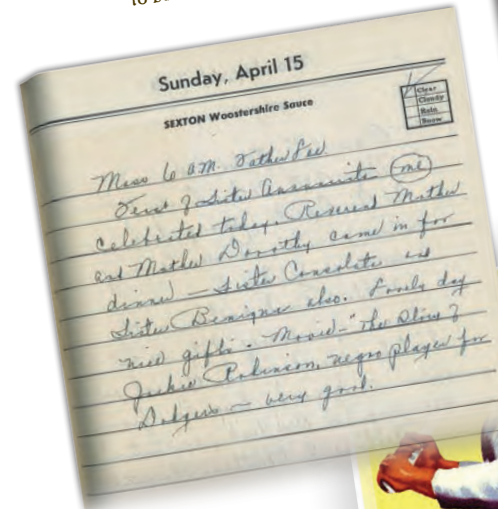 Sunday, April 15
SEXTON Woostershire Sauce
Clear
Cloudy
Rain
Snow
Mass 6 a.m. Father Lee
Feast of Sister Annunciata (me)
celebrated today. Reverend Mother
and Mother Dorothy came in for
dinner – Sister Consolata and
Sister Benigna also. Lovely day
nice gifts. Movie – "The Story of
Jackie Robinson, negro player for
Dodgers – very good.